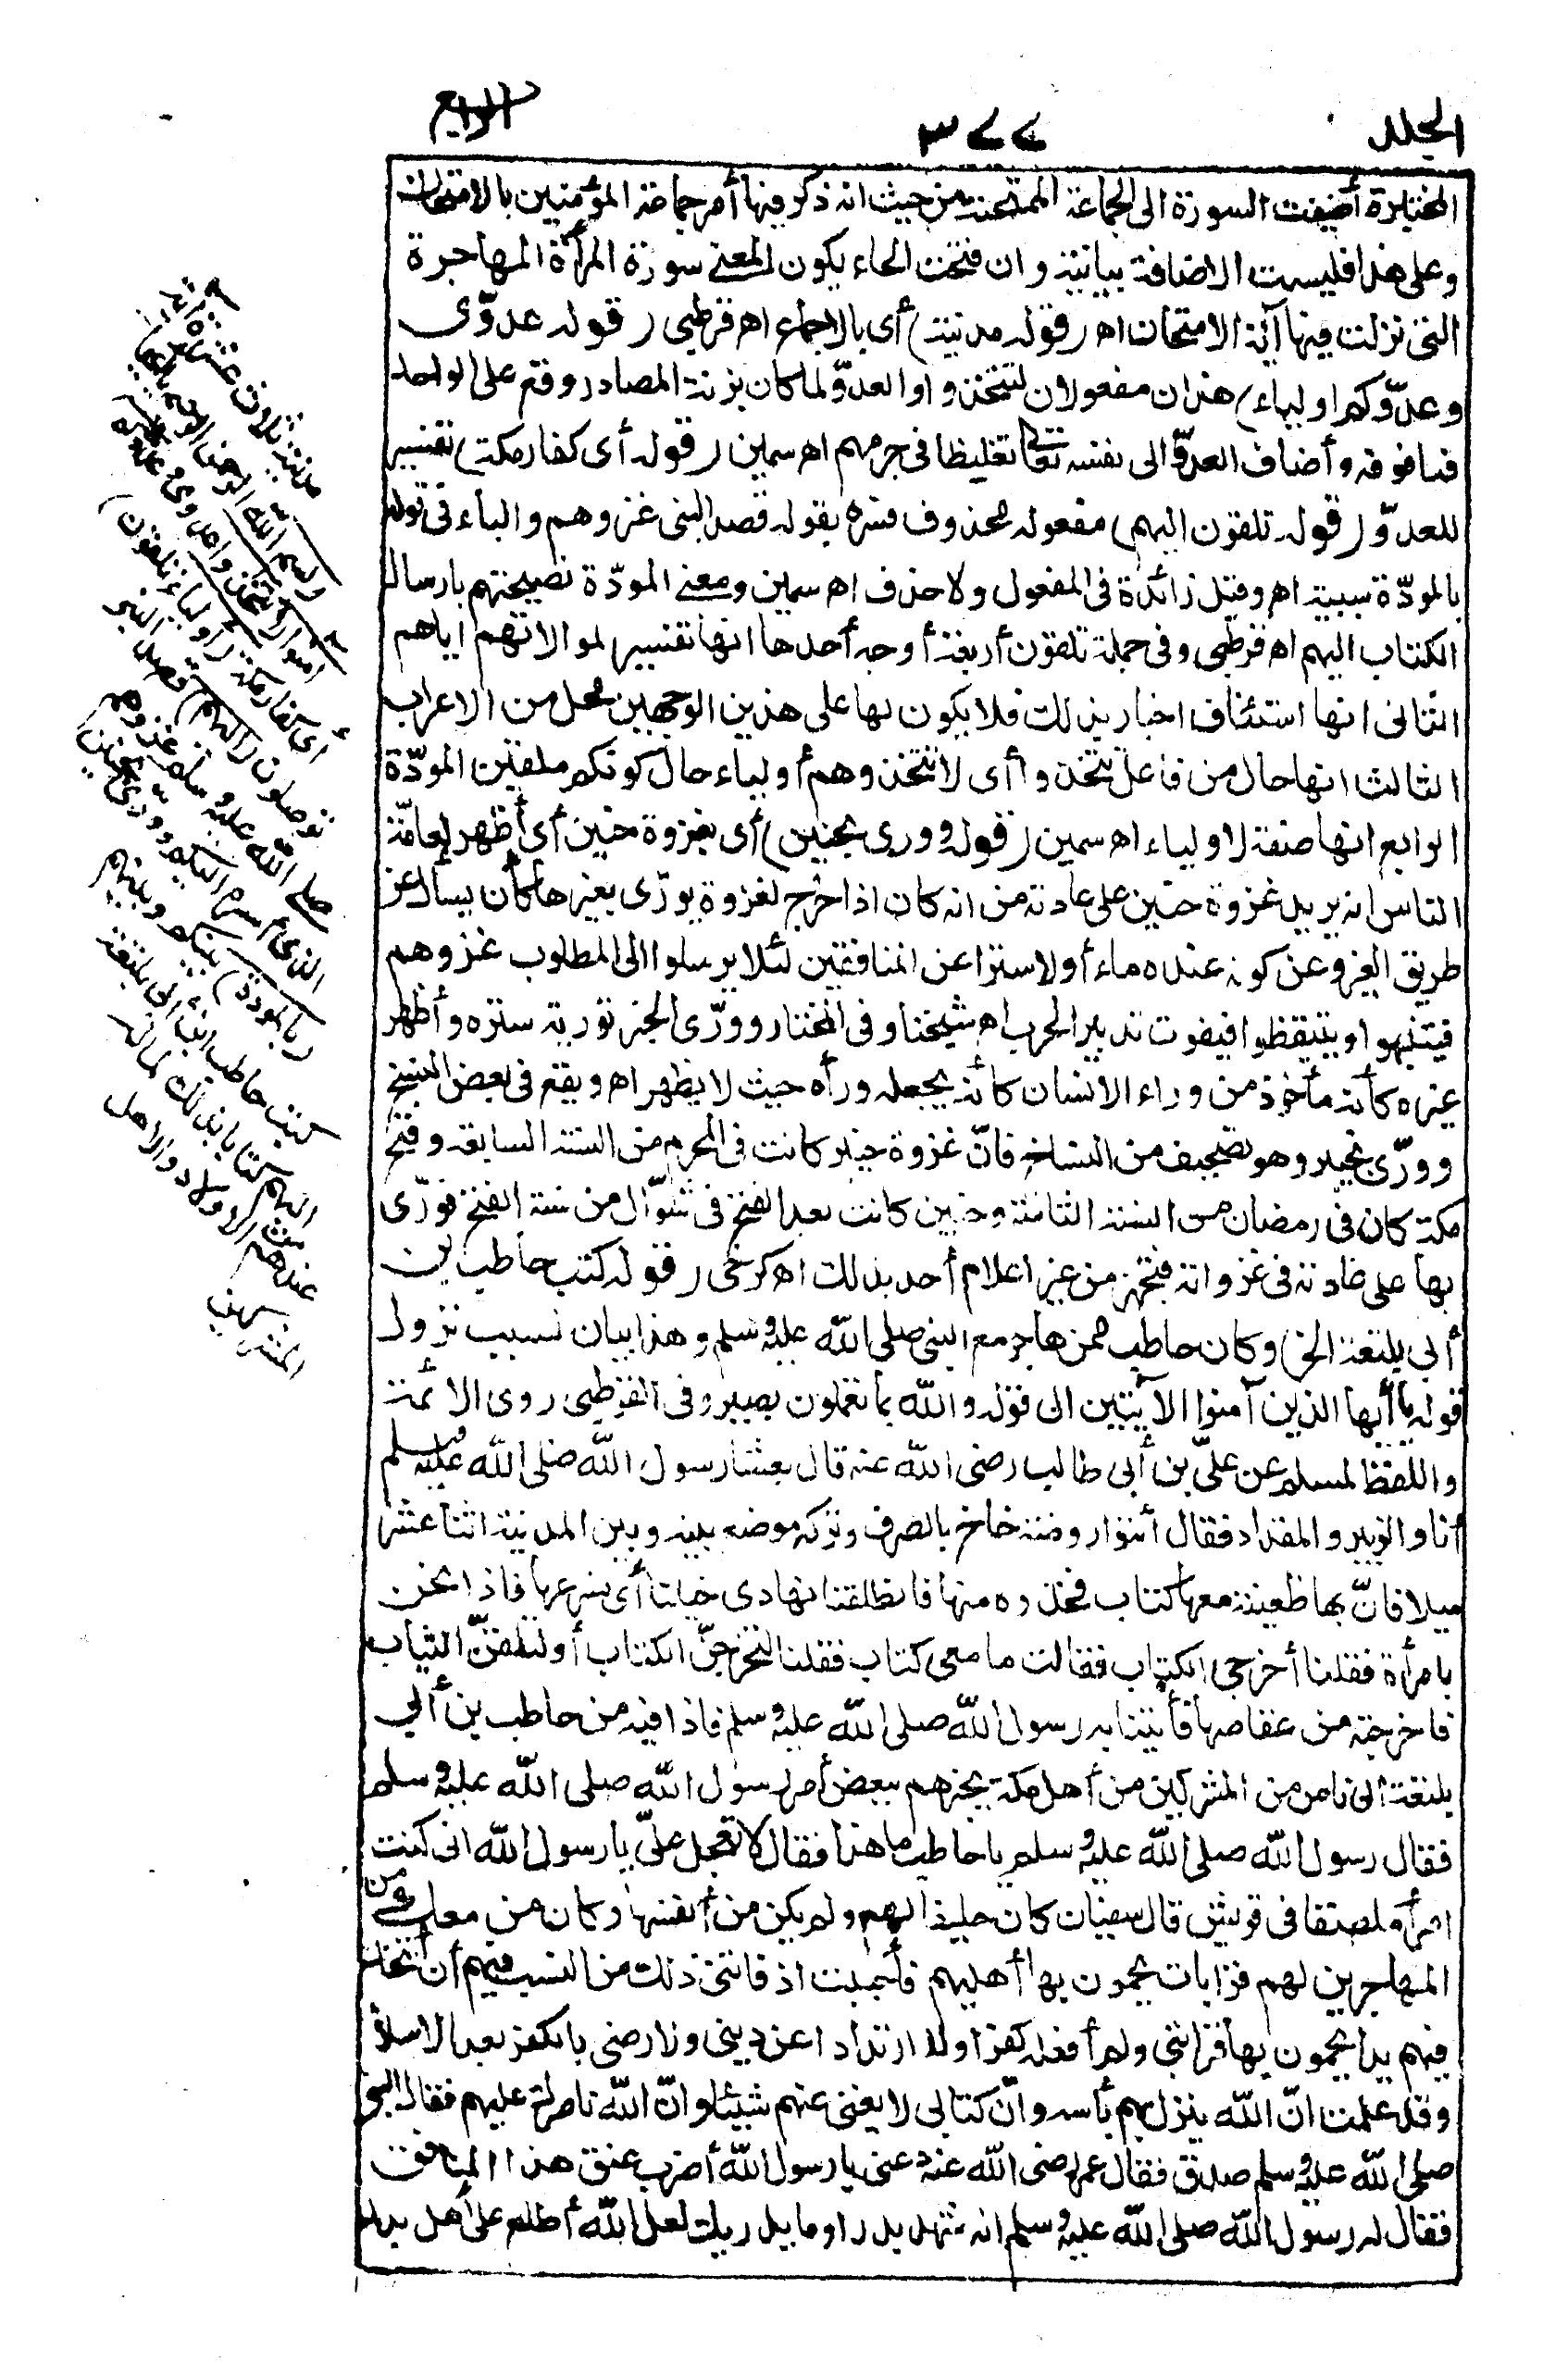 المجلد
٣٧٧
الرابع
المختبرة أضيفت السورة الى الجماعة الممتحنة من حيث انه ذكر فيها أمر جماعة المؤمنين بالامتحان
وعلى هذا فليست الاضافة بيانية وان فتحت الحاء يكون المعنى سورة المرأة المهاجرة
التى نزلت فيها آية الامتحان اه (قوله مدنية) أى بالاجماع اه قرطبى (قوله عدوّى
وعدوّكم اولياء) هذان مفعولان لتتخذوا والعدوّ لما كان بزنة المصادر وقع على الواحد
فما فوقه وأضاف العدوّ الى نفسه تعالى تغليظا فى جرمهم اه سمين (قوله أى كفار مكة) تفسير
للعدوّ (قوله تلقون اليهم) مفعوله محذوف فسره بقوله قصد النبى غزوهم والباء فى قوله
بالمودّة سببية اه وقيل زائدة فى المفعول ولا حذف اه سمين ومعنى المودّة نصيحتهم بارسال
الكتاب اليهم اه قرطبى وفى جملة تلقون أربعة أوجه أحدها انها تفسير لموالاتهم اياهم
الثانى انها استئناف اخبار بذلك فلا يكون لها على هذين الوجهين محل من الاعراب
الثالث انها حال من فاعل تتخذوا أى لا تتخذوهم أولياء حال كونكم ملقين المودّة
الرابع انها صفة لاولياء اه سمين (قوله وورى بحنين) أى بغزوة حنين أى أظهر لعامّة
الناس انه يريد غزوة حنين على عادته من انه كان اذا خرج لغزوة يورّى بغيرها كأن يسأل عن
طريق الغزو عن كونه عنده ماء أولا سترا عن المنافقين لئلا يرسلوا الى المطلوب غزوهم
فيتنبهوا ويتيقظوا فيفوت تدبير الحرب اه شيخنا وفى المختار وورّى الخبر تورية ستره وأظهر
غيره كأنه مأخوذ من وراء الانسان كأنه يجعله وراءه حيث لا يظهر اه ويقع فى بعض النسخ
وورّى بخيبر وهو تصحيف من النساخ فانّ غزوة خيبر كانت فى المحرم من السنة السابعة وفتح
مكة كان فى رمضان من السنة الثامنة وحنين كانت بعد الفتح فى شوّال من سنة الفتح فورّى
بها على عادته فى غزواته فتجهز من غير اعلام أحد بذلك اه كرخى (قوله كتب حاطب بن
أبى بلتعة الخ) وكان حاطب ممن هاجر مع النبى صلى الله عليه وسلم وهذا بيان لسبب نزول
قوله يا أيها الذين آمنوا الآيتين الى قوله والله بما تعملون بصير وفى القرطبى روى الائمة
واللفظ لمسلم عن علىّ بن أبى طالب رضى الله عنه قال بعثنا رسول الله صلى الله عليه وسلم
أنا والزبير والمقداد فقال أئتوا روضة خاخ بالصرف وتركه موضع بينه وبين المدينة اثنا عشر
ميلا فانّ بها ظعينة معها كتاب فخذوه منها فانطلقنا تهادى خيلنا أى نسرعها فاذا نحن
بامرأة فقلنا أخرجى الكتاب فقالت ما معى كتاب فقلنا لتخرجنّ الكتاب أو لتلقنّ الثياب
فاخرجته من عقاصها فأتينا به رسول الله صلى الله عليه وسلم فاذا فيه من حاطب بن أبى
بلتعة الى ناس من المشركين من أهل مكة يخبرهم ببعض أمر رسول الله صلى الله عليه وسلم
فقال رسول الله صلى الله عليه وسلم يا حاطب ما هذا فقال لا تعجل علىّ يا رسول الله انى كنت
امرأ ملصقا فى قريش قال سفيان كان حليفا لهم ولم يكن من أنفسها وكان من معك من
المهاجرين لهم قرابات يحمون بها أهليهم فأحببت اذ فاتنى ذلك من النسب فيهم أن أتخذ
فيهم يدا يحمون بها قرابتى ولم أفعله كفرا ولا ارتدادا عن دينى ولا رضى بالكفر بعد الاسلام
وقد علمت انّ الله ينزل بهم بأسه وانّ كتابى لا يغنى عنهم شيئا وانّ الله ناصرك عليهم فقال النبى
صلى الله عليه وسلم صدق فقال عمر رضى الله عنه دعنى يا رسول الله أضرب عنق هذا المنافق
فقال له رسول الله صلى الله عليه وسلم انه شهد بدرا وما يدريك لعل الله أطلع على أهل بدر
مدنية ثلاث عشرة آية
(بسم الله الرحمن الرحيم يا أيها الذين
آمنوا لا تتخذوا عدوى وعدوكم)
أى كفار مكة (أولياء تلقون)
توصلون (اليهم) قصد النبى
صلى الله عليه وسلم غزوهم
الذى أسره اليكم وورى بحنين
(بالمودة) بينكم وبينهم
كتب حاطب ابن أبى بلتعة
اليهم كتابا بذلك لما له
عندهم من الاولاد والاهل
المشركين